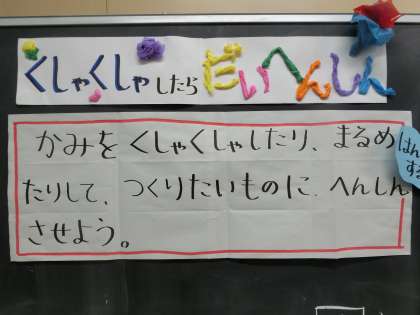 くしゃくしゃしたら だいへんしん
かみを くしゃくしゃしたり、まるめ
たりして、つくりたいものに へんしん
させよう。
はん
す